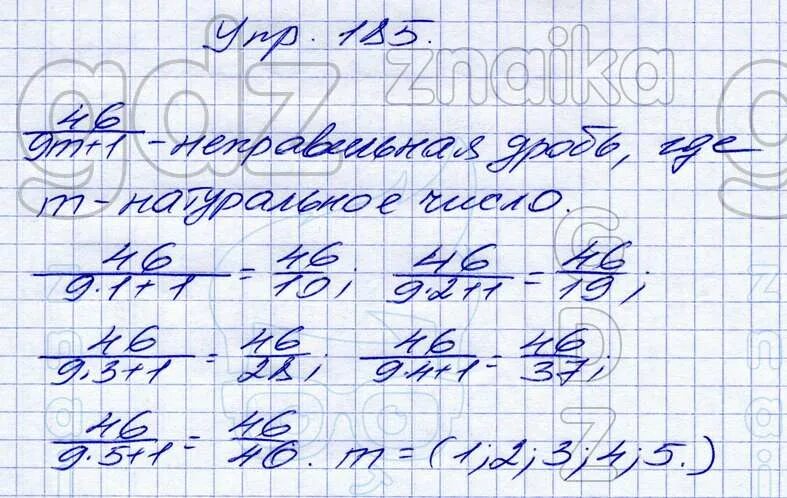 Упр. 185.
46/(9m+1) - неправильная дробь, где
m - натуральное число.
46/(9·1+1) = 46/10; 46/(9·2+1) = 46/19;
46/(9·3+1) = 46/28; 46/(9·4+1) = 46/37;
46/(9·5+1) = 46/46. m = (1; 2; 3; 4; 5.)
gdz znaika
GDZ